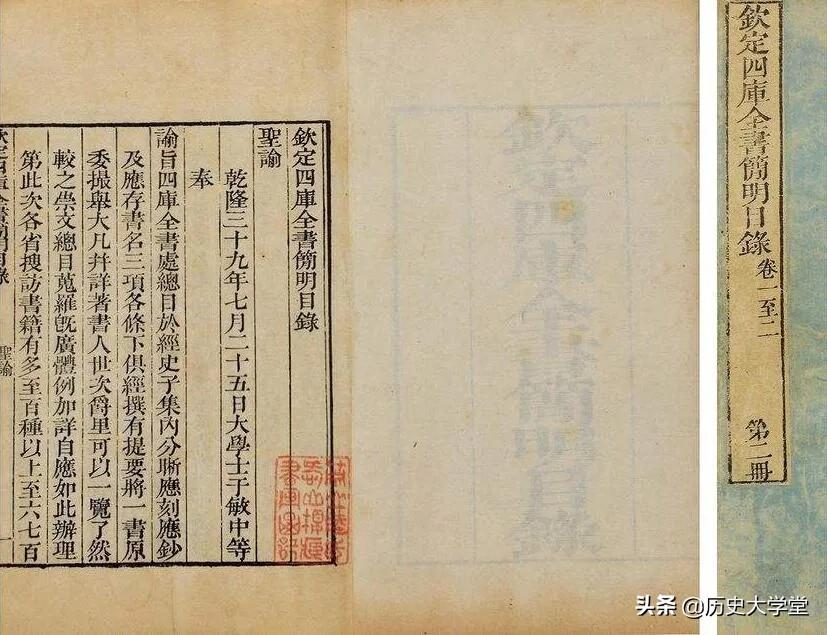 欽定四庫全書簡明目錄
聖諭
乾隆三十九年七月二十五日大學士于敏中等
奉
諭旨四庫全書處總目於經史子集內分晰應刻應鈔
及應存書名三項各條下俱經撰有提要將一書原
委撮舉大凡并詳著書人世次爵里可以一覽了然
較之崇文總目蒐羅旣廣體例加詳自應如此辦理
第此次各省搜訪書籍有多至百種以上至六七百
聖諭
一
欽定四庫全書簡明目錄
欽定四庫全書簡明目錄
卷一至二
第二冊
头条 @历史大学堂